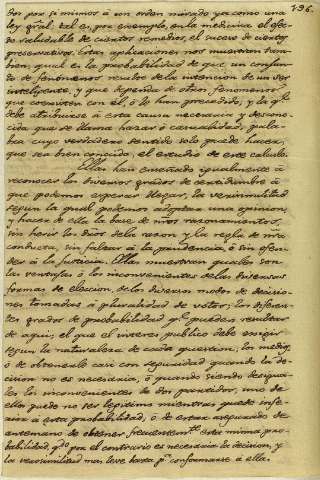 196.
dos por si mismos à un orden mirado ya como una
ley gral. tal es, por ejemplo, en la medicina el efec-
to saludable de ciertos remedios, el suceso de ciertos
preservativos. Estas aplicaciones nos muestran tam-
bien, qual es la probabilidad de que un conjun-
to de fenomenos resulte de la intencion de un ser
inteligente, y que dependa de otros fenomenos
que coexisten con el, ò lo han precedido, y la qe.
debe atribuirse à esta causa necesaria y descono-
cida que se llama hazar ò casualidad, pala-
bra cuyo verdadero sentido solo puede hacer,
que sea bien conocido, el estudio de este calculo.
Ellas han enseñado igualmente à
reconocer los diversos grados de certidumbre à
que podemos esperar llegar, la verisimilitud
segun la qual podemos adoptar una opinion,
y hacer de ella la base de ntros razonamientos,
sin herir los dros de la razon y la regla de nra
conducta, sin faltar à la prudencia ò sin ofen-
der à la justicia. Ellas muestran quales son
las ventajas ò los inconvenientes de las diversas
formas de eleccion, de los diversos modos de decisio-
nes tomadas à pluralidad de votos; los diferen-
tes grados de probabilidad qe. pueden resultar
de aqui; el que el interes publico debe exigir
segun la naturaleza de cada question; los medios,
ò de obtenerle casi con seguridad quando la de-
cision no es necesaria, ò quando siendo desigua-
les los inconvenientes de dos partidos, uno de
ellos puede no ser legitimo mientras quede infe-
rior à esta probabilidad, ò de estar asegurado de
antemano de obtener frecuentemte. esta misma pro-
babilidad, qdo. por el contrario es necesaria la decision, y
la verosimilitud mas leve basta pa. conformarse à ella.